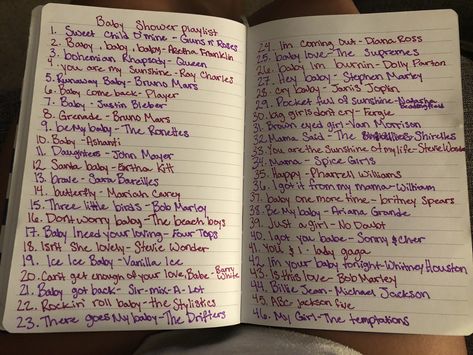 Baby Shower playlist
1. Sweet Child O'mine - Guns n Roses
2. Baby, baby, baby - Aretha Franklin
3. bohemian Rhapsody - Queen
4. you are my Sunshine - Ray Charles
5. Runaway Baby - Bruno Mars
6. Baby come back - Player
7. Baby - Justin Bieber
8. Grenade - Bruno Mars
9. be My baby - The Ronettes
10. Baby - Ashanti
11. Daughters - John Mayer
12. Santa baby - Eartha Kitt
13. brave - Sara Bareilles
14. butterfly - Mariah Carey
15. Three little birds - Bob Marley
16. Dont worry baby - The beach boys
17. Baby I need your loving - Four Tops
18. Isn't She lovely - Stevie Wonder
19. Ice Ice Baby - Vanilla Ice
20. Can't get enough of your love, Babe - Barry White
21. Baby got back - Sir-mix-A-Lot
22. Rockin roll baby - the Stylistics
23. There goes My baby - The Drifters
24. I'm Coming Out - Diana Ross
25. baby love - The Supremes
26. baby I'm burnin - Dolly Parton
27. Hey baby - Stephen Marley
28. cry baby - Janis Joplin
29. Pocket full of sunshine - Natasha Bedingfield
30. big girls dont cry - Fergie
31. Brown eyed girl - Van Morrison
32. Mama Said - The Shirelles
33. You are the sunshine of my life - Stevie Wonder
34. Mama - Spice Girls
35. Happy - Pharrell Williams
36. I got it from my mama - William
37. baby one more time - britney Spears
38. Be My baby - Ariana Grande
39. Just a girl - No Doubt
40. I got you babe - Sonny & Cher
41. YOU, I - lady gaga
42. I'm your baby tonight - Whitney Houston
43. Is this love - Bob Marley
44. Billie Jean - Michael Jackson
45. ABC jackson five
46. My Girl - The temptations